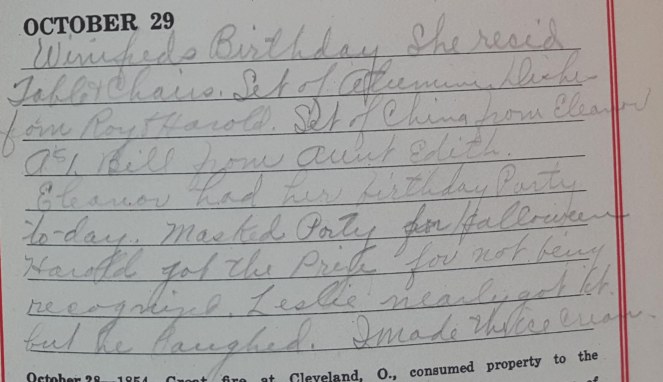 OCTOBER 29
Winifreds Birthday She recid
Table & Chairs. Set of Alumin. Dishe
from Roy & Harold. Set of China from Eleanor
a $1. Bill from Aunt Edith.
Eleanor had her birthday Party
to-day. Masked Party for Halloween
Harold got the Prize for not being
recognized. Leslie nearly got it
but he laughed. I made the ice cream.
1854 Great fire at Cleveland, O., consumed property to the
of